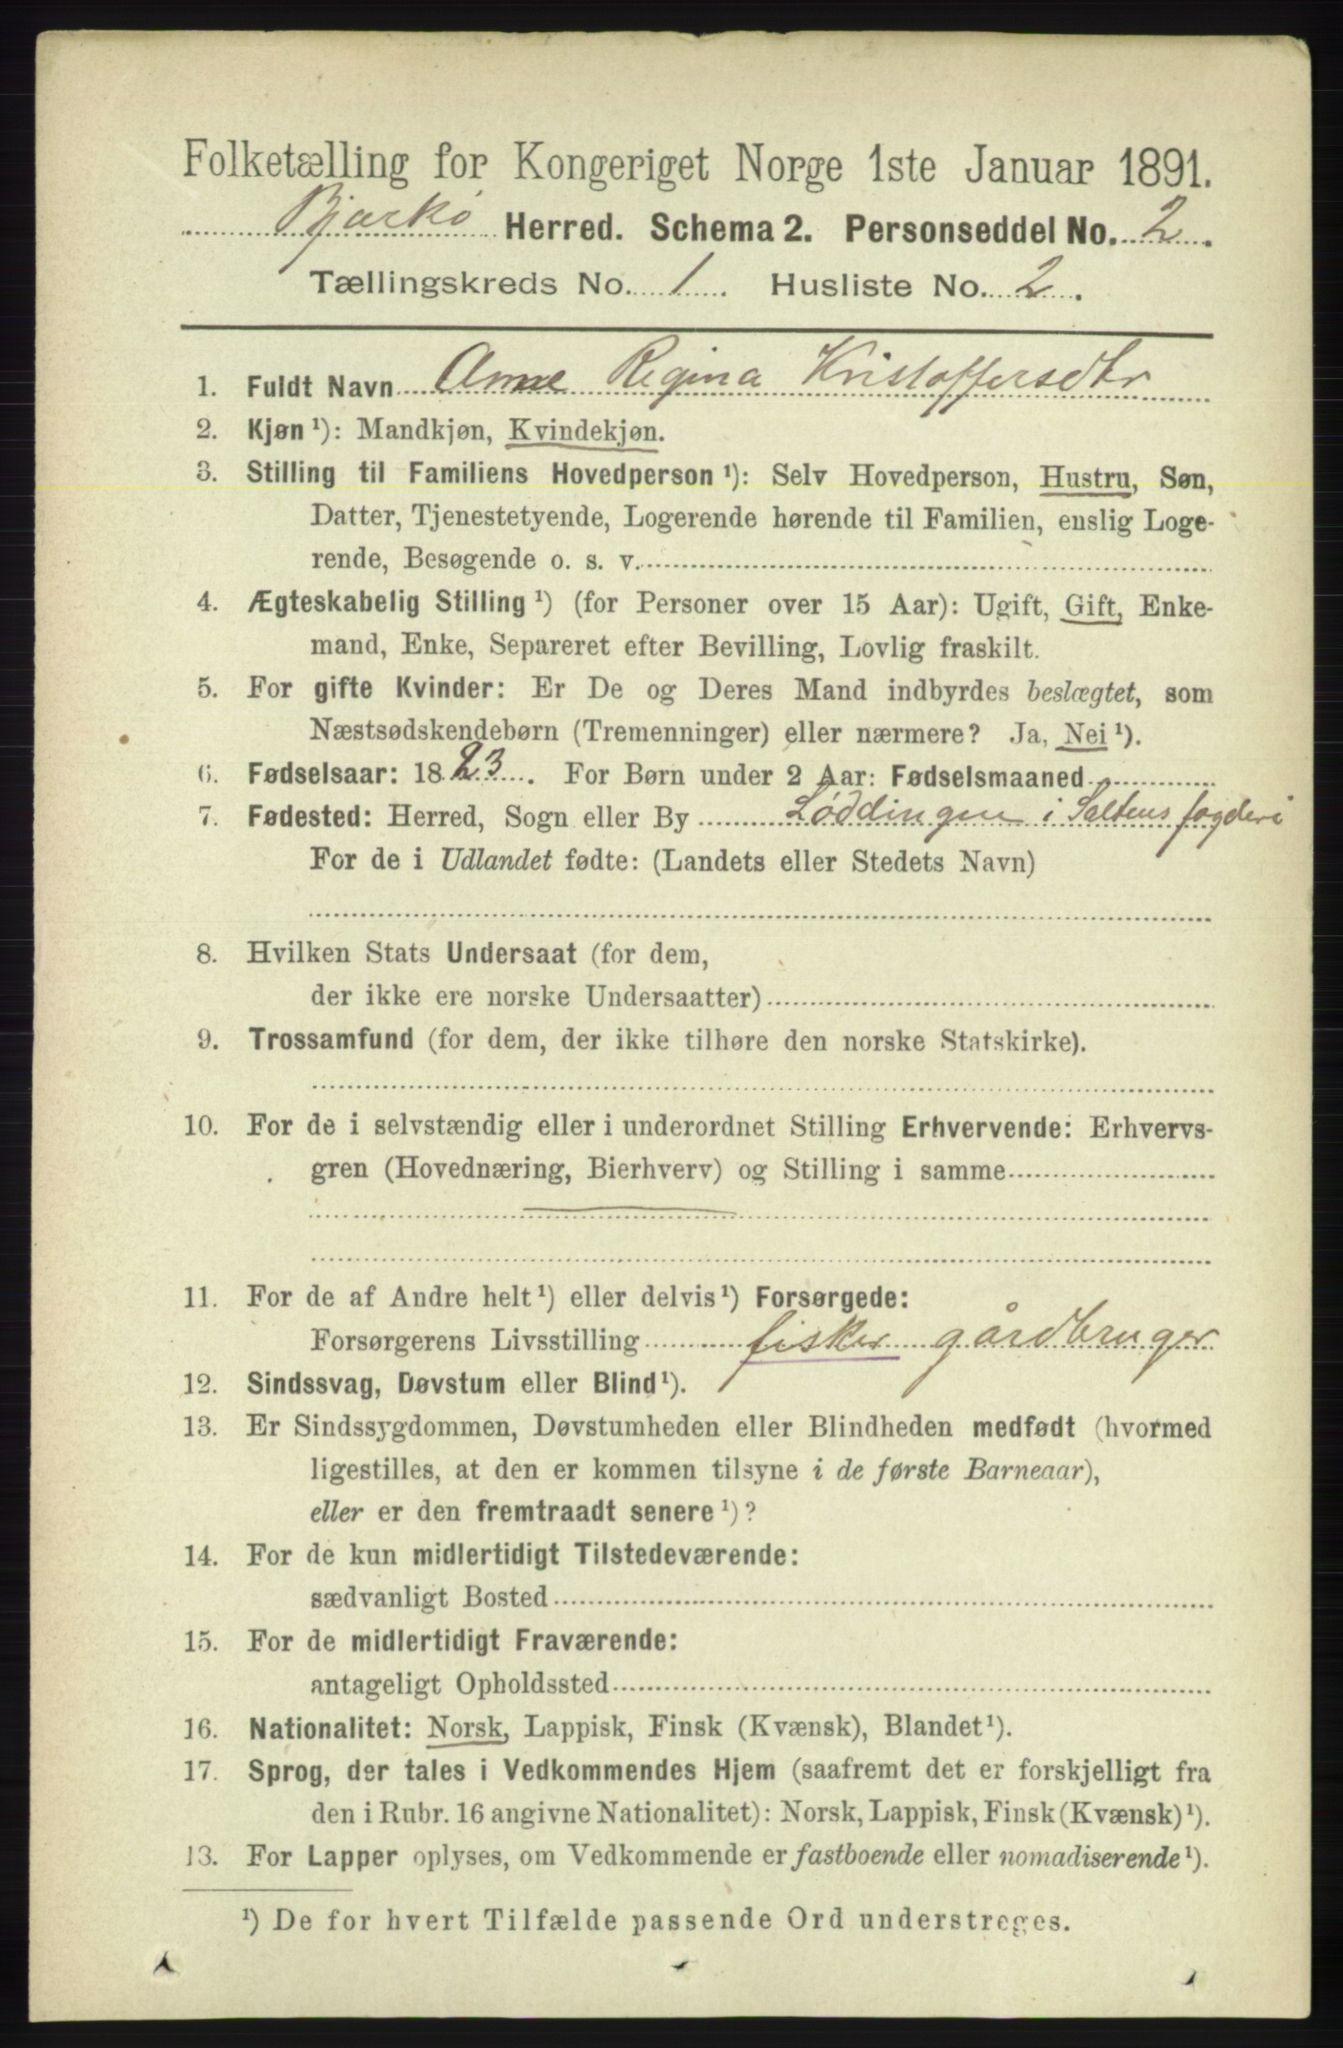 Folketælling for Kongeriget Norge 1ste Januar 1891.
Bjarkø Herred. Schema 2. Personseddel No. 2.
Tællingskreds No. 1. Husliste No. 2.
1. Fuldt Navn Anne Regina Kristoffersdtr
2. Kjøn ¹): Mandkjøn, Kvindekjøn.
3. Stilling til Familiens Hovedperson ¹): Selv Hovedperson, Hustru, Søn,
Datter, Tjenestetyende, Logerende hørende til Familien, enslig Loge-
rende, Besøgende o. s. v.
4. Ægteskabelig Stilling ¹) (for Personer over 15 Aar): Ugift, Gift, Enke-
mand, Enke, Separeret efter Bevilling, Lovlig fraskilt.
5. For gifte Kvinder: Er De og Deres Mand indbyrdes beslægtet, som
Næstsødskendebørn (Tremenninger) eller nærmere? Ja, Nei ¹).
6. Fødselsaar: 1823. For Børn under 2 Aar: Fødselsmaaned
7. Fødested: Herred, Sogn eller By Løddingen i Saltens fogderi
For de i Udlandet fødte: (Landets eller Stedets Navn)
8. Hvilken Stats Undersaat (for dem,
der ikke ere norske Undersaatter)
9. Trossamfund (for dem, der ikke tilhøre den norske Statskirke).
10. For de i selvstændig eller i underordnet Stilling Erhvervende: Erhvervs-
gren (Hovednæring, Bierhverv) og Stilling i samme
11. For de af Andre helt ¹) eller delvis ¹) Forsørgede:
Forsørgerens Livsstilling fisker gårdbruger
12. Sindssvag, Døvstum eller Blind ¹).
13. Er Sindssygdommen, Døvstumheden eller Blindheden medfødt (hvormed
ligestilles, at den er kommen tilsyne i de første Barneaar),
eller er den fremtraadt senere ¹)?
14. For de kun midlertidigt Tilstedeværende:
sædvanligt Bosted
15. For de midlertidigt Fraværende:
antageligt Opholdssted
16. Nationalitet: Norsk, Lappisk, Finsk (Kvænsk), Blandet ¹).
17. Sprog, der tales i Vedkommendes Hjem (saafremt det er forskjelligt fra
den i Rubr. 16 angivne Nationalitet): Norsk, Lappisk, Finsk (Kvænsk) ¹).
13. For Lapper oplyses, om Vedkommende er fastboende eller nomadiserende ¹).
¹) De for hvert Tilfælde passende Ord understreges.